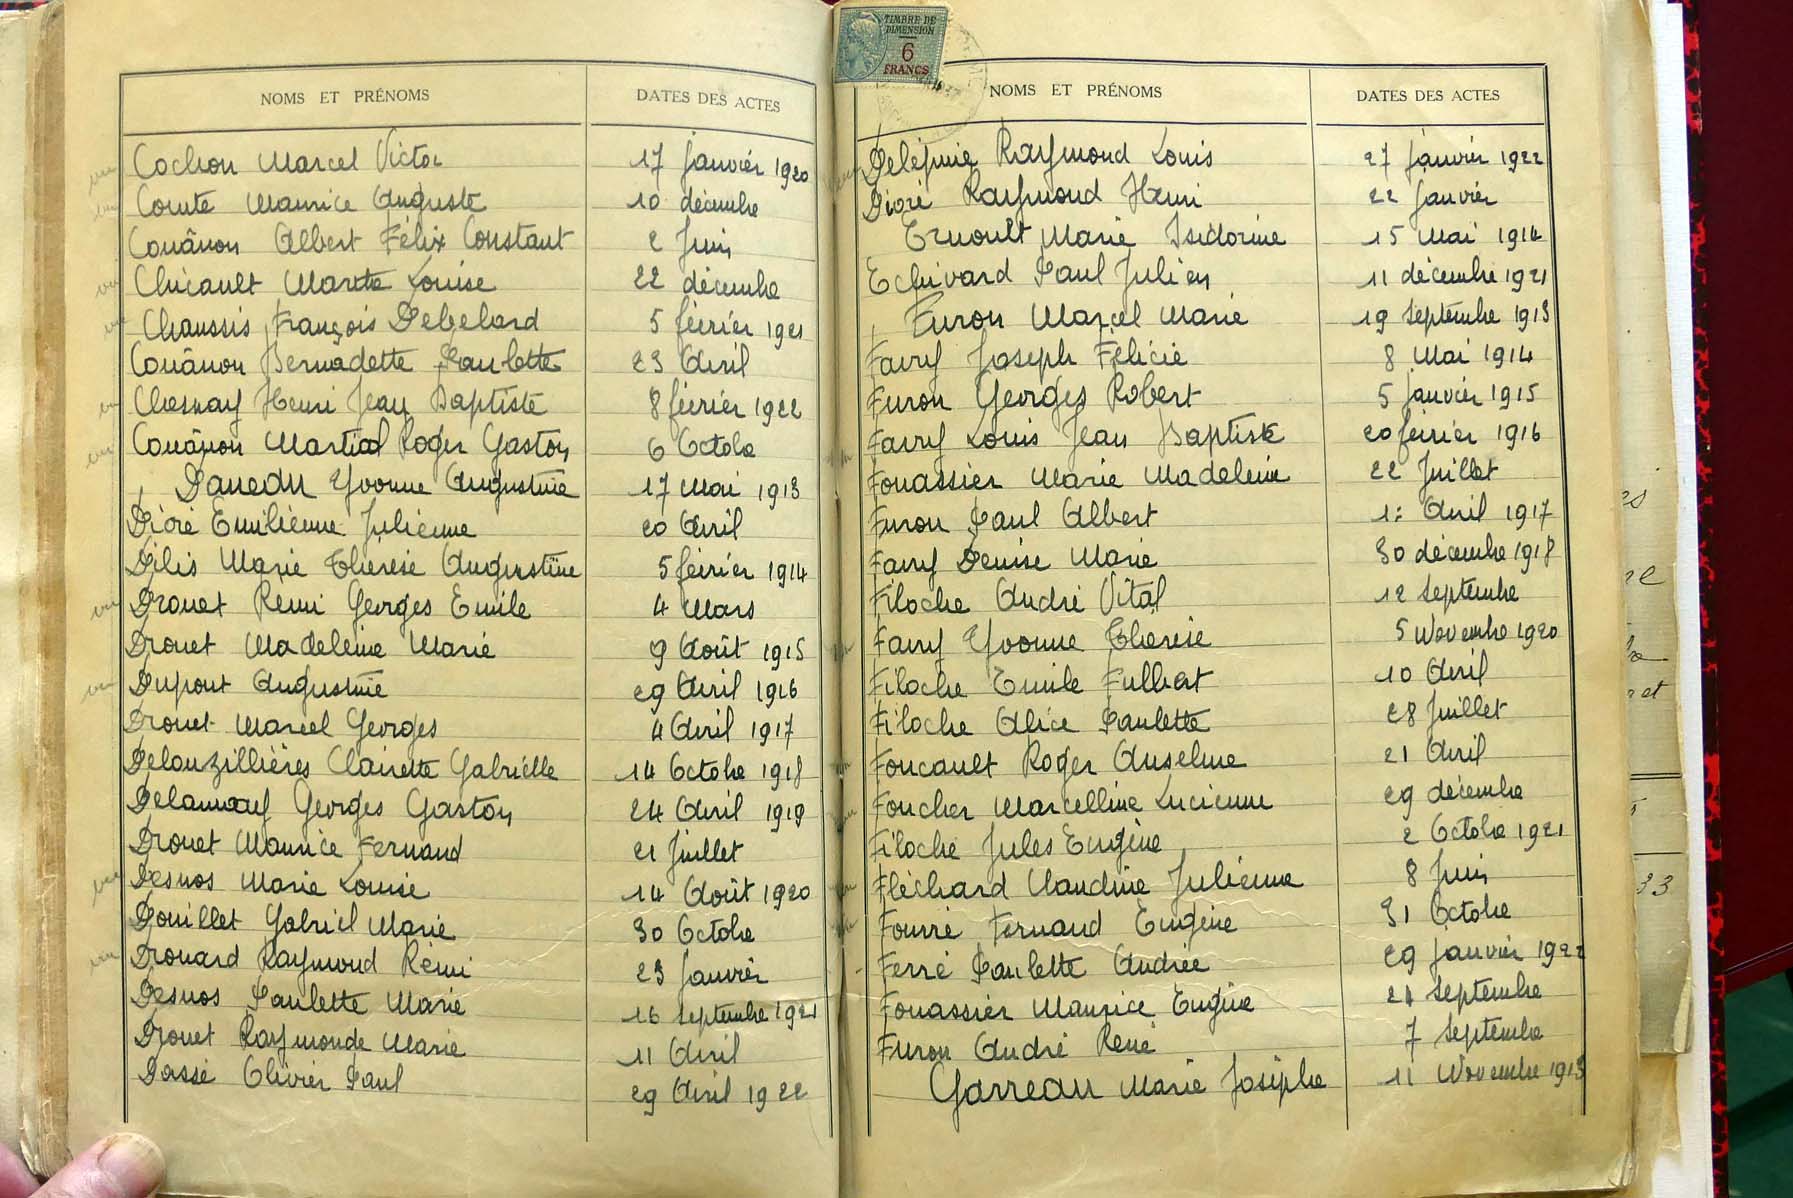 NOMS ET PRÉNOMS DATES DES ACTES
Cochon Marcel Victor 17 Janvier 1920
Comte Maurice Auguste 10 décembre
Couânon Albert Félix Constant 2 Juin
Chicault Marthe Louise 22 décembre
Chaussis François Debelard 5 février 1921
Couânon Bernadette Paulette 23 Avril
Chesnay Henri Jean Baptiste 8 février 1922
Couânon Martial Roger Gaston 6 Octobre
Daneau Yvonne Augustine 17 Mai 1913
Dioré Emilienne Julienne 20 Avril
Dilis Marie Thérèse Augustine 5 février 1914
Drouet Rémi Georges Emile 4 Mars
Drouet Madeleine Marie 9 Août 1915
Dupont Augustine 29 Avril 1916
Drouet Marcel Georges 4 Avril 1917
Delouzillières Clairette Gabrielle 14 Octobre 1918
Georges Gaston 24 Avril 1919
Drouet Maurice Fernand 21 Juillet
Desnos Marie Louise 14 Août 1920
Douillet Gabriel Marie 30 Octobre
Drouard Raymond Rémi 23 Janvier
Desnos Paulette Marie 16 Septembre 1921
Drouet Raymonde Marie 11 Avril
Dassé Olivier Paul 29 Avril 1922
TIMBRE DE
DIMENSION
6
FRANCS
NOMS ET PRÉNOMS DATES DES ACTES
Delépine Raymond Louis 27 Janvier 1922
Dioré Raymond Henri 22 Janvier
Ernoult Marie Isidorine 15 Mai 1914
Echivard Paul Julien 11 décembre 1921
Furon Marcel Marie 19 Septembre 1913
Favry Joseph Félicie 8 Mai 1914
Furon Georges Robert 5 Janvier 1915
Favry Louis Jean Baptiste 20 février 1916
Fouassier Marie Madeleine 22 Juillet
Furon Paul Albert 1: Avril 1917
Favry Denise Marie 30 décembre 1918
Filoche André Vital 12 Septembre
Favry Yvonne Thérèse 5 Novembre 1920
Filoche Emile Fulbert 10 Avril
Filoche Alice Paulette 28 Juillet
Foucault Roger Anselme 21 Avril
Foucher Marcelline Lucienne 29 décembre
Filoche Jules Eugène 2 Octobre 1921
Fléchard Claudine Julienne 8 Juin
Fourré Fernand Eugène 31 Octobre
Ferré Paulette Andrée 29 Janvier 1922
Fouassier Maurice Eugène 24 Septembre
Furon André René 7 Septembre
Garreau Marie Josèphe 11 Novembre 1913